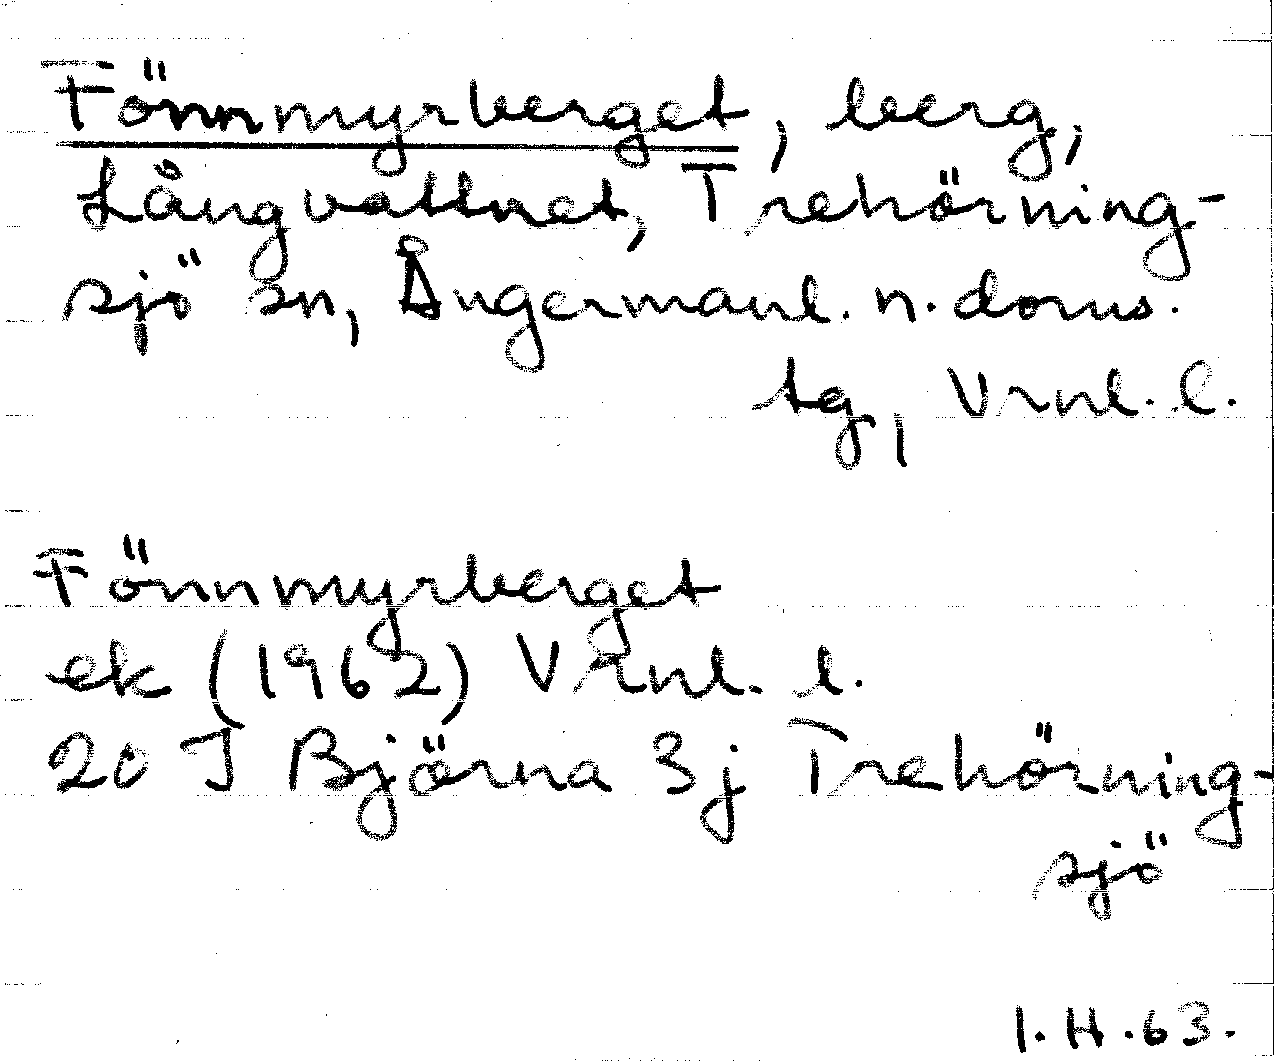 Fönnmyrberget, berg,
Långvattnet, Trehörning-
sjö sn, Ångermanl. n. doms.
tg, Vrnl. l.
Fönnmyrberget
ek (1962) Vrnl. l.
20 J Björna 3j Trehörning-
sjö
I.H.63.